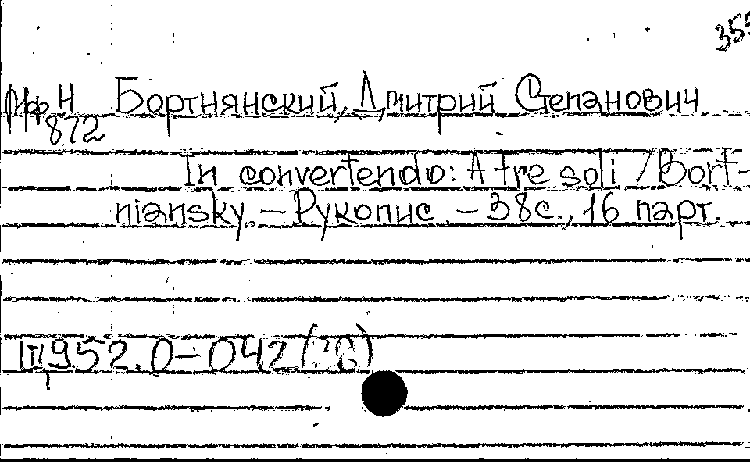 355
Н Бортнянский, Дмитрий Степанович
872
In convertendo: A tre soli / Bort-
niansky. – Рукопис. – 38с., 16 парт.
Щ952.0–042